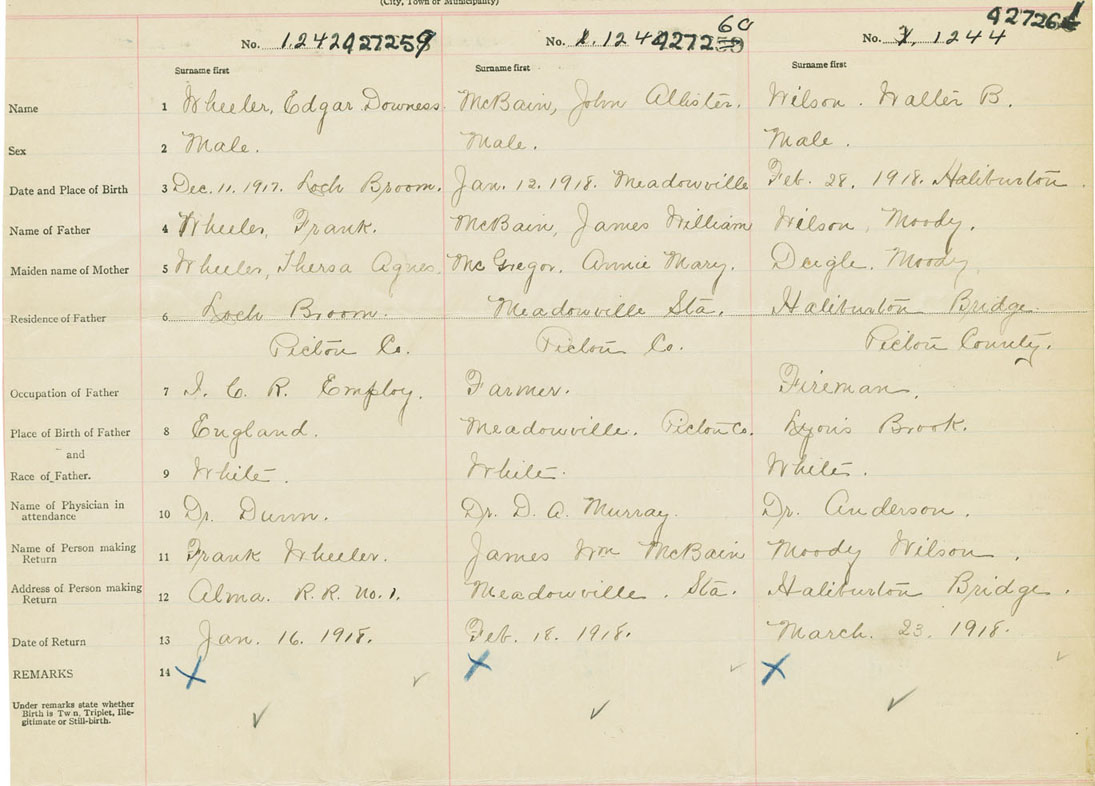 (City, Town or Municipality)
No. 1242 427259 No. 1. 124 4272 60 No. 1, 1244 42726
Surname first Surname first Surname first
Name 1 Wheeler, Edgar Downess McBain, John Allister. Wilson. Walter B.
Sex 2 Male. Male. Male.
Date and Place of Birth 3 Dec. 11. 1917. Loch Broom. Jan. 12. 1918. Meadowville Feb. 28, 1918. Haliburton.
Name of Father 4 Wheeler, Frank. McBain, James William Wilson, Moody.
Maiden name of Mother 5 Wheeler, Thersa Agnes. McGregor. Annie Mary. Deigle. Moody
Residence of Father 6 Loch Broom. Meadowville Sta. Haliburton Bridge.
Pictou Co. Pictou Co. Pictou County.
Occupation of Father 7 I. C. R. Employ. Farmer. Fireman.
Place of Birth of Father 8 England. Meadowville. Pictou Co. Lyons Brook.
and
Race of Father. 9 White. White. White.
Name of Physician in
attendance 10 Dr. Dunn. Dr. D. A. Murray. Dr. Anderson.
Name of Person making
Return 11 Frank Wheeler. James Wm McBain Moody Wilson.
Address of Person making
Return 12 Alma. R.R. No. 1. Meadowville. Sta. Haliburton Bridge.
Date of Return 13 Jan. 16. 1918. Feb. 18. 1918. March. 23. 1918.
REMARKS 14
Under remarks state whether
Birth is Twin, Triplet, Ille-
gitimate or Still-birth.